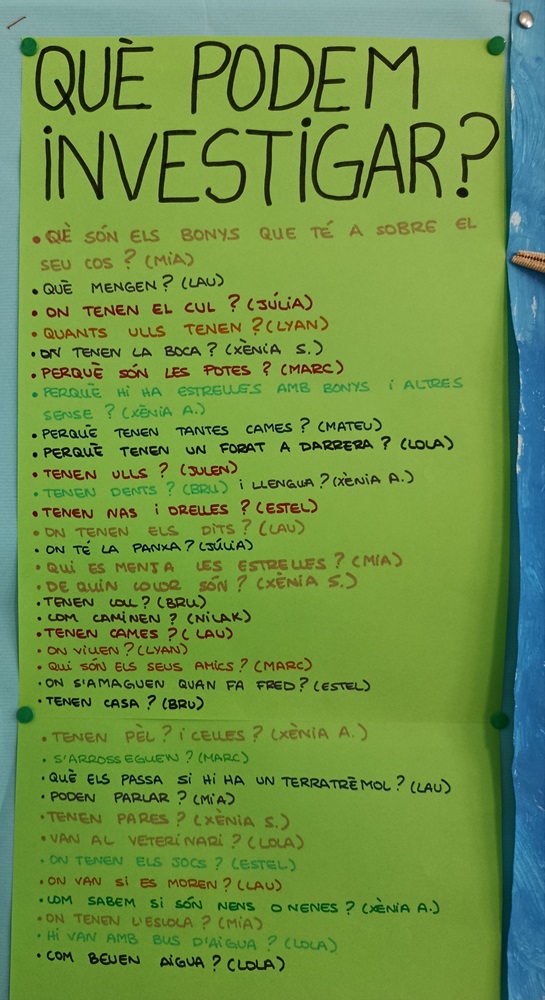 QUÈ PODEM
INVESTIGAR?
• QUÈ SÓN ELS BONYS QUE TÉ A SOBRE EL
SEU COS? (MIA)
• QUÈ MENGEN? (LAU)
• ON TENEN EL CUL? (JÚLIA)
• QUANTS ULLS TENEN? (LYAN)
• ON TENEN LA BOCA? (XÈNIA S.)
• PERQUÈ SÓN LES POTES? (MARC)
• PERQUÈ HI HA ESTRELLES AMB BONYS I ALTRES
SENSE? (XÈNIA A.)
• PERQUÈ TENEN TANTES CAMES? (MATEU)
• PERQUÈ TENEN UN FORAT A DARRERA? (LOLA)
• TENEN ULLS? (JULEN)
• TENEN DENTS? (BRU) I LLENGUA? (XÈNIA A.)
• TENEN NAS I ORELLES? (ESTEL)
• ON TENEN ELS DITS? (LAU)
• ON TÉ LA PANXA? (JÚLIA)
• QUI ES MENJA LES ESTRELLES? (MIA)
• DE QUIN COLOR SÓN? (XÈNIA S.)
• TENEN COLL? (BRU)
• COM CAMINEN? (NILAK)
• TENEN CAMES? (LAU)
• ON VIUEN? (LYAN)
• QUI SÓN ELS SEUS AMICS? (MARC)
• ON S'AMAGUEN QUAN FA FRED? (ESTEL)
• TENEN CASA? (BRU)
• TENEN PÈL? I CELLES? (XÈNIA A.)
• S'ARROSSEGUEN? (MARC)
• QUÈ ELS PASSA SI HI HA UN TERRATRÈMOL? (LAU)
• PODEN PARLAR? (MIA)
• TENEN PARES? (XÈNIA S.)
• VAN AL VETERINARI? (LOLA)
• ON TENEN ELS JOCS? (ESTEL)
• ON VAN SI ES MOREN? (LAU)
• COM SABEM SI SÓN NENS O NENES? (XÈNIA A.)
• ON TENEN L'ESCOLA? (MIA)
• HI VAN AMB BUS D'AIGUA? (LOLA)
• COM BEUEN AIGUA? (LOLA)